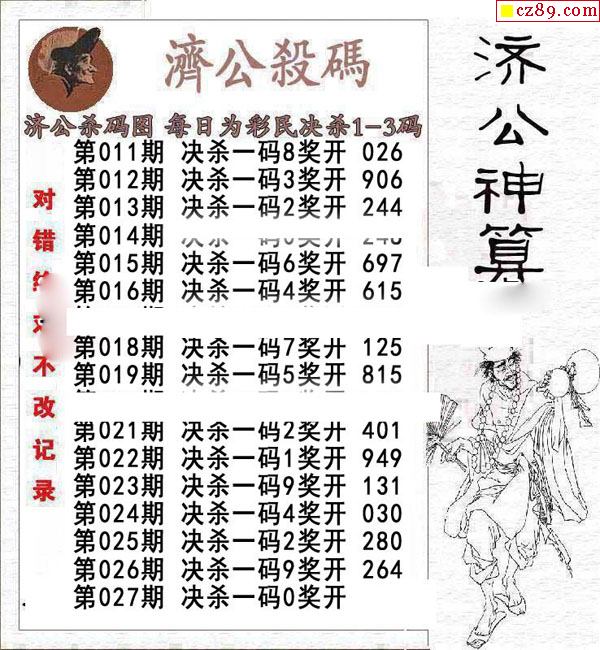 cz89.com
濟公殺碼
济公杀码图 每日为彩民决杀1-3码
第011期 决杀一码8奖开 026
第012期 决杀一码3奖开 906
第013期 决杀一码2奖开 244
第014期
第015期 决杀一码6奖开 697
第016期 决杀一码4奖开 615
第018期 决杀一码7奖开 125
第019期 决杀一码5奖开 815
第021期 决杀一码2奖开 401
第022期 决杀一码1奖开 949
第023期 决杀一码9奖开 131
第024期 决杀一码4奖开 030
第025期 决杀一码2奖开 280
第026期 决杀一码9奖开 264
第027期 决杀一码0奖开
对错 不改记录
济公神算